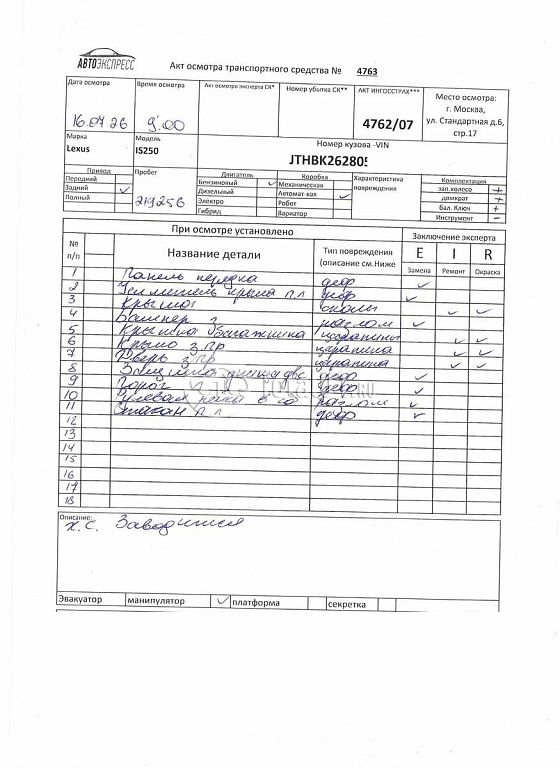 АВТОЭКСПРЕСС
Акт осмотра транспортного средства № 4763
Дата осмотра
16.07.26
Время осмотра
9:00
Акт осмотра эксперта СК*
Номер убытка СК**
АКТ ИНГОССТРАХ***
4762/07
Место осмотра:
г. Москва,
ул. Стандартная д.6,
стр.17
Марка
Lexus
Модель
IS250
Номер кузова -VIN
JTHBK262805
Привод
Передний
Задний ✓
Полный
Пробег
219256
Двигатель
Бензиновый ✓
Дизельный
Электро
Гибрид
Коробка
Механическая
Автомат-кая ✓
Робот
Вариатор
Характеристика
повреждения
Комплектация
зап.колесо +
домкрат –
бал. Ключ +
Инструмент –
При осмотре установлено
Заключение эксперта
№
п/п
Название детали
Тип повреждения
(описание см.Ниже
E I R
Замена Ремонт Окраска
1 Панель передка деф ✓
2 Усилитель крыла п.л деф ✓
3 Крыша сколы ✓ ✓
4 Бампер з разлом ✓
5 Крышка багажника царапины ✓ ✓
6 Крыло з пр царапина ✓ ✓
7 Дверь з пр царапина ✓ ✓
8 Защита днища двс деф ✓
9 Порог деф ✓
10 Рулевая рейка в сб разлом ✓
11 Стакан п.л деф ✓
12
13
14
15
16
17
18
Описание:
х.с. Заводится
Эвакуатор манипулятор ✓ платформа секретка